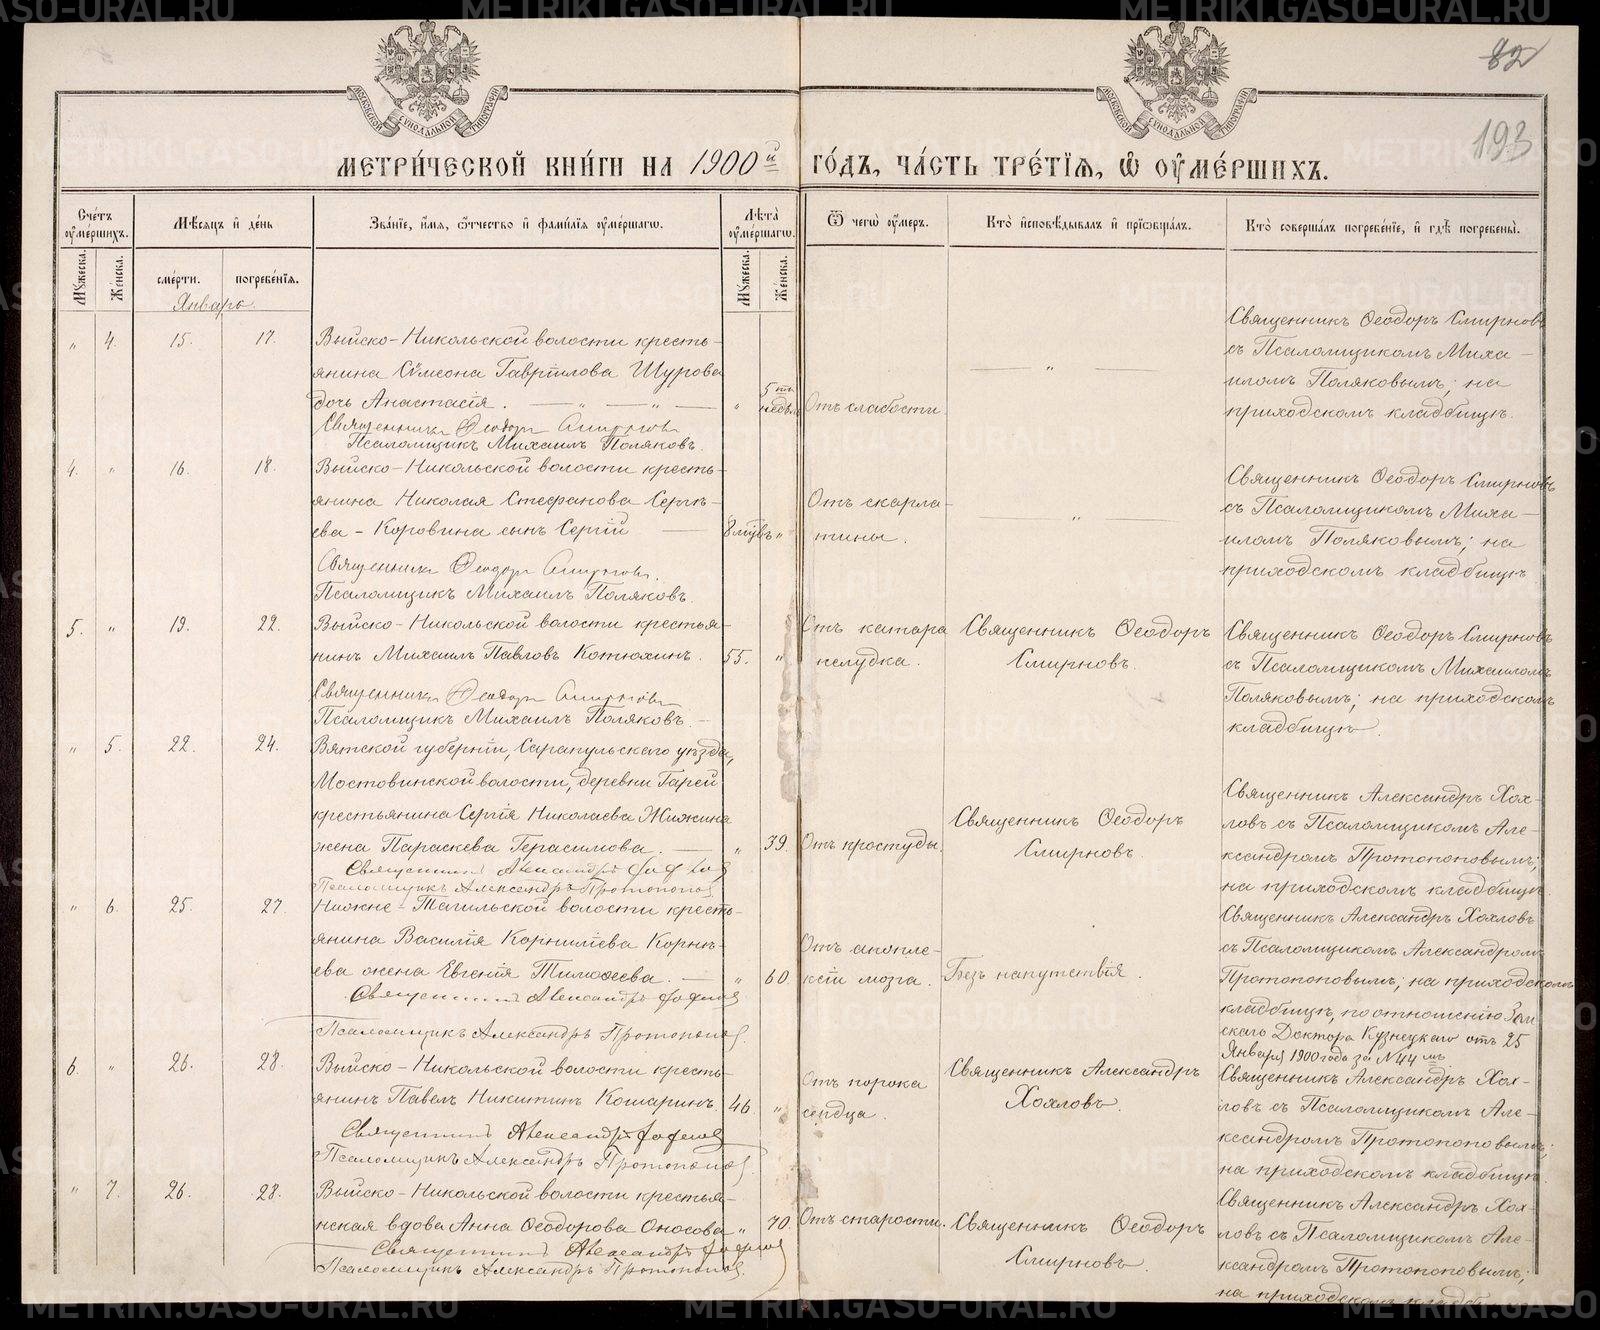 82
193
МЕТРИ́ЧЕСКОЙ КНИ́ГИ НА 1900й ГО́ДЪ, ЧА́СТЬ ТРЕ́ТІЯ, Ѡ ОУ҆МЕ́РШИХЪ.
Сче́тъ оу҆ме́ршихъ.
Мѣ́сяцъ и҆ де́нь
Зва́нїе, и҆́мя, ѻ҆́тчество и҆ фами́лїя оу҆ме́ршагѡ.
Лѣ́та оу҆ме́ршагѡ.
Ѿ чегѡ̀ оу҆́меръ.
Кто̀ и҆сповѣ́дывалъ и҆ прїѡбща́лъ.
Кто̀ соверша́лъ погребе́нїе, и҆ гдѣ̀ погребены̀.
Мꙋ́жеска.
Же́нска.
сме́рти.
погребе́нїя.
Мꙋ́жеска.
Же́нска.
Январь.
" 4. 15. 17.
Выйско-Никольской волости кресть-
янина Сѵмеона Гаврiилова Щурова
дочь Анастасiя. — " — " —
Священникъ Ѳеодоръ Смирновъ
Псаломщикъ Михаилъ Поляковъ.
" 5ть недѣль
Отъ слабости
— " —
Священникъ Ѳеодоръ Смирновъ
съ Псаломщикомъ Миха-
иломъ Поляковымъ; на
приходскомъ кладбищѣ.
4. " 16. 18.
Выйско-Никольской волости кресть-
янина Николая Стефанова Сергѣ-
ева-Коровина сынъ Сергiй —
Священникъ Ѳеодоръ Смирновъ.
Псаломщикъ Михаилъ Поляковъ.
8 мцвъ "
Отъ скарла-
тины.
— " —
Священникъ Ѳеодоръ Смирновъ
съ Псаломщикомъ Миха-
иломъ Поляковымъ; на
приходскомъ кладбищѣ
5. " 19. 22.
Выйско-Никольской волости крестья-
нинъ Михаилъ Павловъ Котюхинъ.
Священникъ Ѳеодоръ Смирновъ
Псаломщикъ Михаилъ Поляковъ. -
55. "
Отъ катара
желудка.
Священникъ Ѳеодоръ
Смирновъ.
Священникъ Ѳеодоръ Смирновъ
съ Псаломщикомъ Михаиломъ
Поляковымъ; на приходскомъ
кладбищѣ.
" 5. 22. 24.
Вятской губернiи, Сарапульскаго уѣзда,
Мостовинской волости, деревни Гарей
крестьянина Сергiя Николаева Жижина
жена Параскева Герасимова. —
Священникъ Александръ Хохловъ
Псаломщикъ Александръ Протопоповъ
" 39.
Отъ простуды.
Священникъ Ѳеодоръ
Смирновъ.
Священникъ Александръ Хох-
ловъ съ Псаломщикомъ Але-
ксандромъ Протопоповымъ;
на приходскомъ кладбищѣ.
" 6. 25. 27.
Нижне-Тагильской волости кресть-
янина Василiя Корнилiева Корнѣ-
ева жена Евгенiя Тимоѳеева. —
Священникъ Александръ Хохловъ
Псаломщикъ Александръ Протопоповъ.
" 60.
Отъ апопле-
ксiи мозга.
Безъ напутствiя.
Священникъ Александръ Хохловъ
съ Псаломщикомъ Александромъ
Протопоповымъ; на приходскомъ
кладбищѣ, по отношенiю Зем-
скаго Доктора Кузнецкаго отъ 25
Января 1900 года за №44мъ
6. " 26. 28.
Выйско-Никольской волости кресть-
янинъ Павелъ Никитинъ Кошаринъ.
Священникъ Александръ Хохловъ
Псаломщикъ Александръ Протопоповъ.
46. "
Отъ порока
сердца.
Священникъ Александръ
Хохловъ.
Священникъ Александръ Хох-
ловъ съ Псаломщикомъ Але-
ксандромъ Протопоповымъ;
на приходскомъ кладбищѣ.
" 7. 26. 28.
Выйско-Никольской волости крестья-
нская вдова Анна Ѳеодорова Оносова
Священникъ Александръ Хохловъ
Псаломщикъ Александръ Протопоповъ.
" 70.
Отъ старости.
Священникъ Ѳеодоръ
Смирновъ.
Священникъ Александръ Хох-
ловъ съ Псаломщикомъ Але-
ксандромъ Протопоповымъ;
на приходскомъ
METRIKI.GASO-URAL.RU